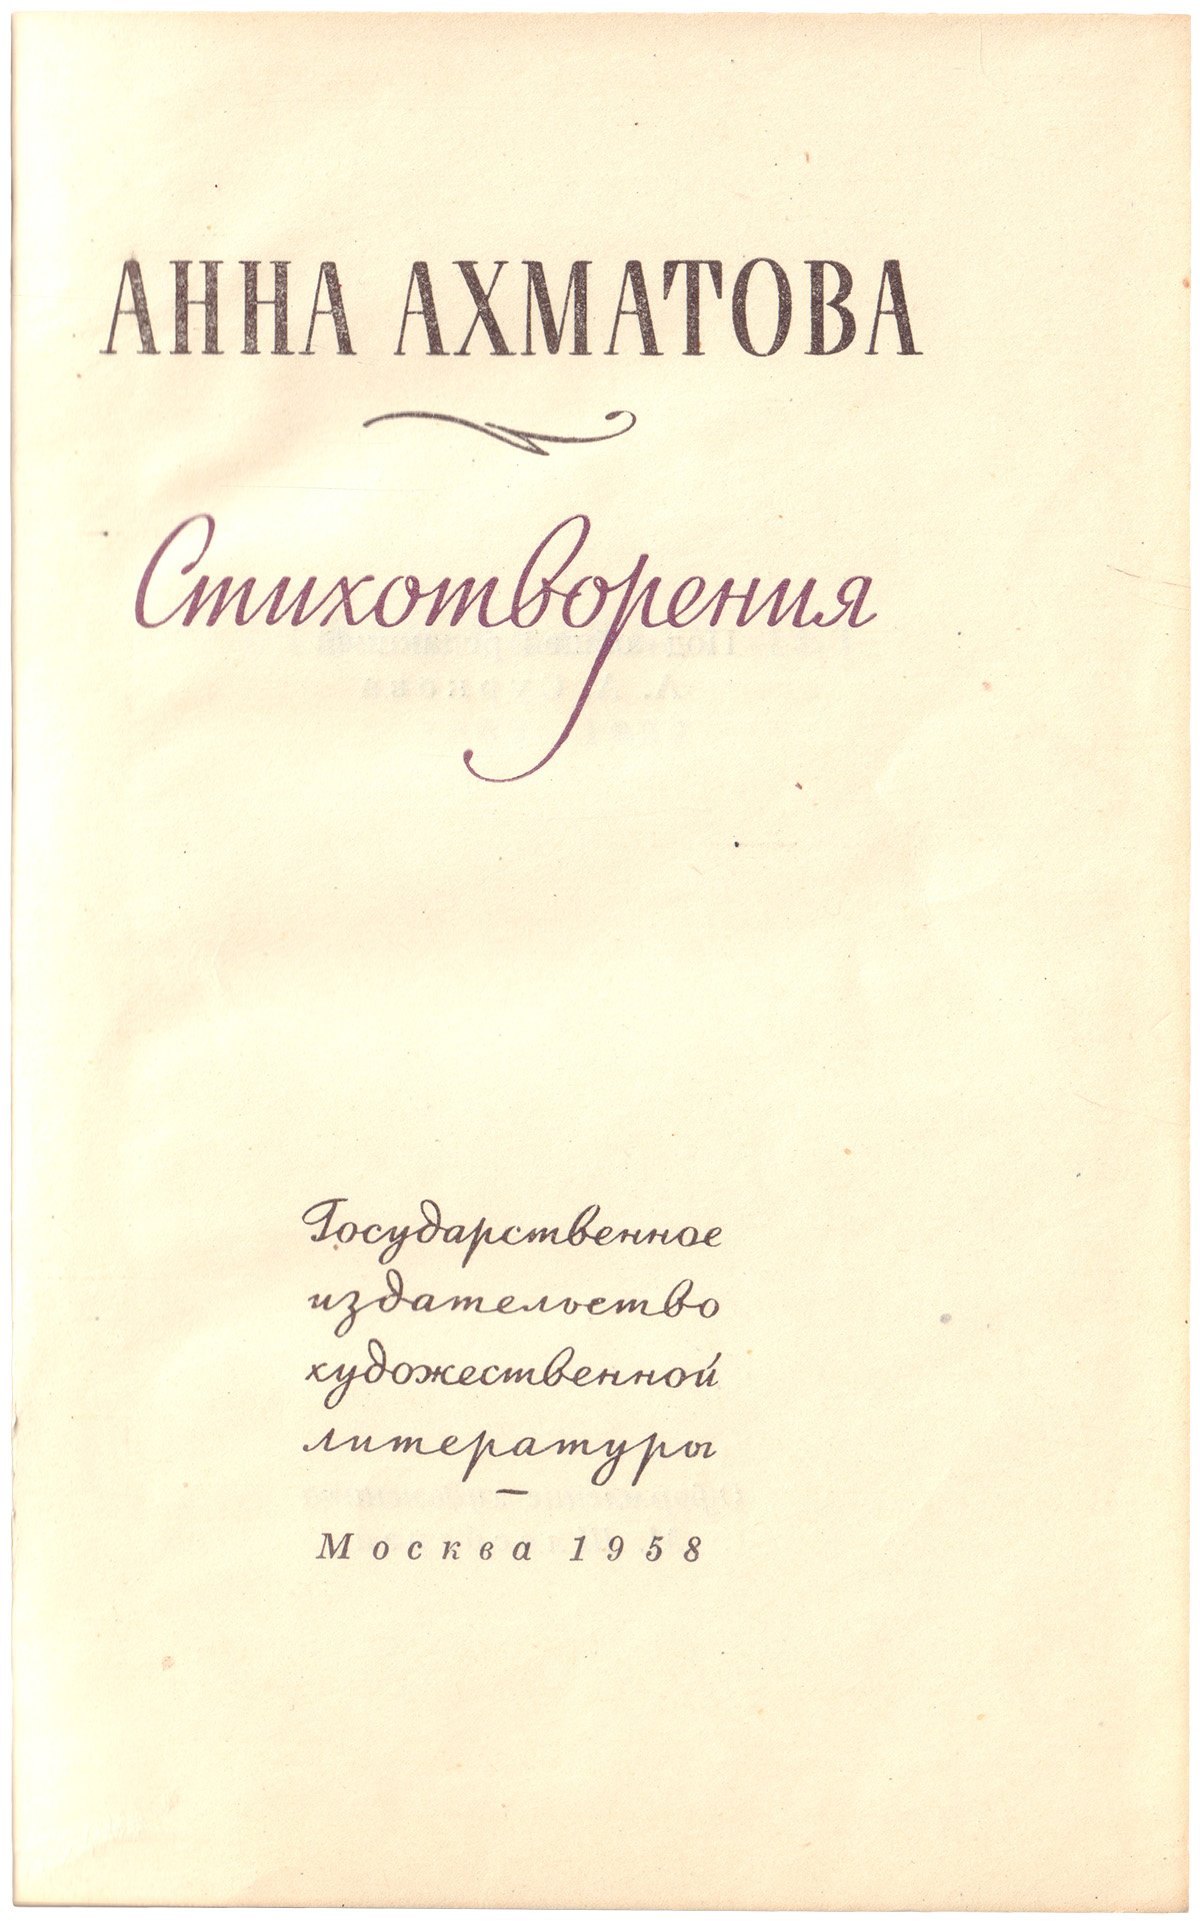 АННА АХМАТОВА
Стихотворения
Государственное
издательство
художественной
литературы
Москва 1958